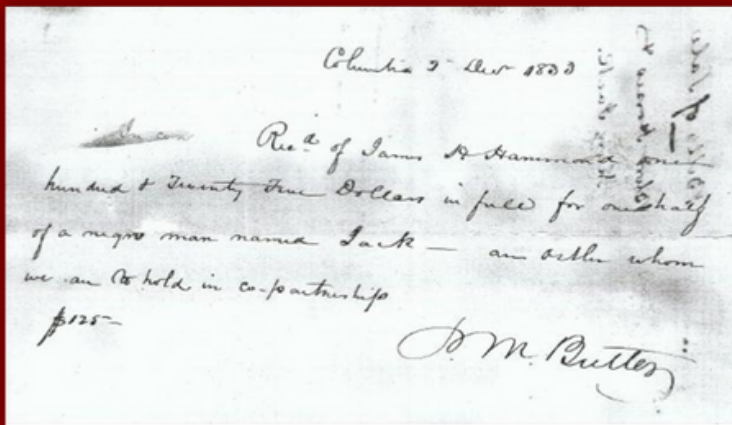 Columbia 2 Decr 1833
Recd of James H Hammond one
hundred & Twenty Five Dollars in full for one half
of a negro man named Jack — an ostler whom
we are to hold in co-partnership
$125—
M. Butler